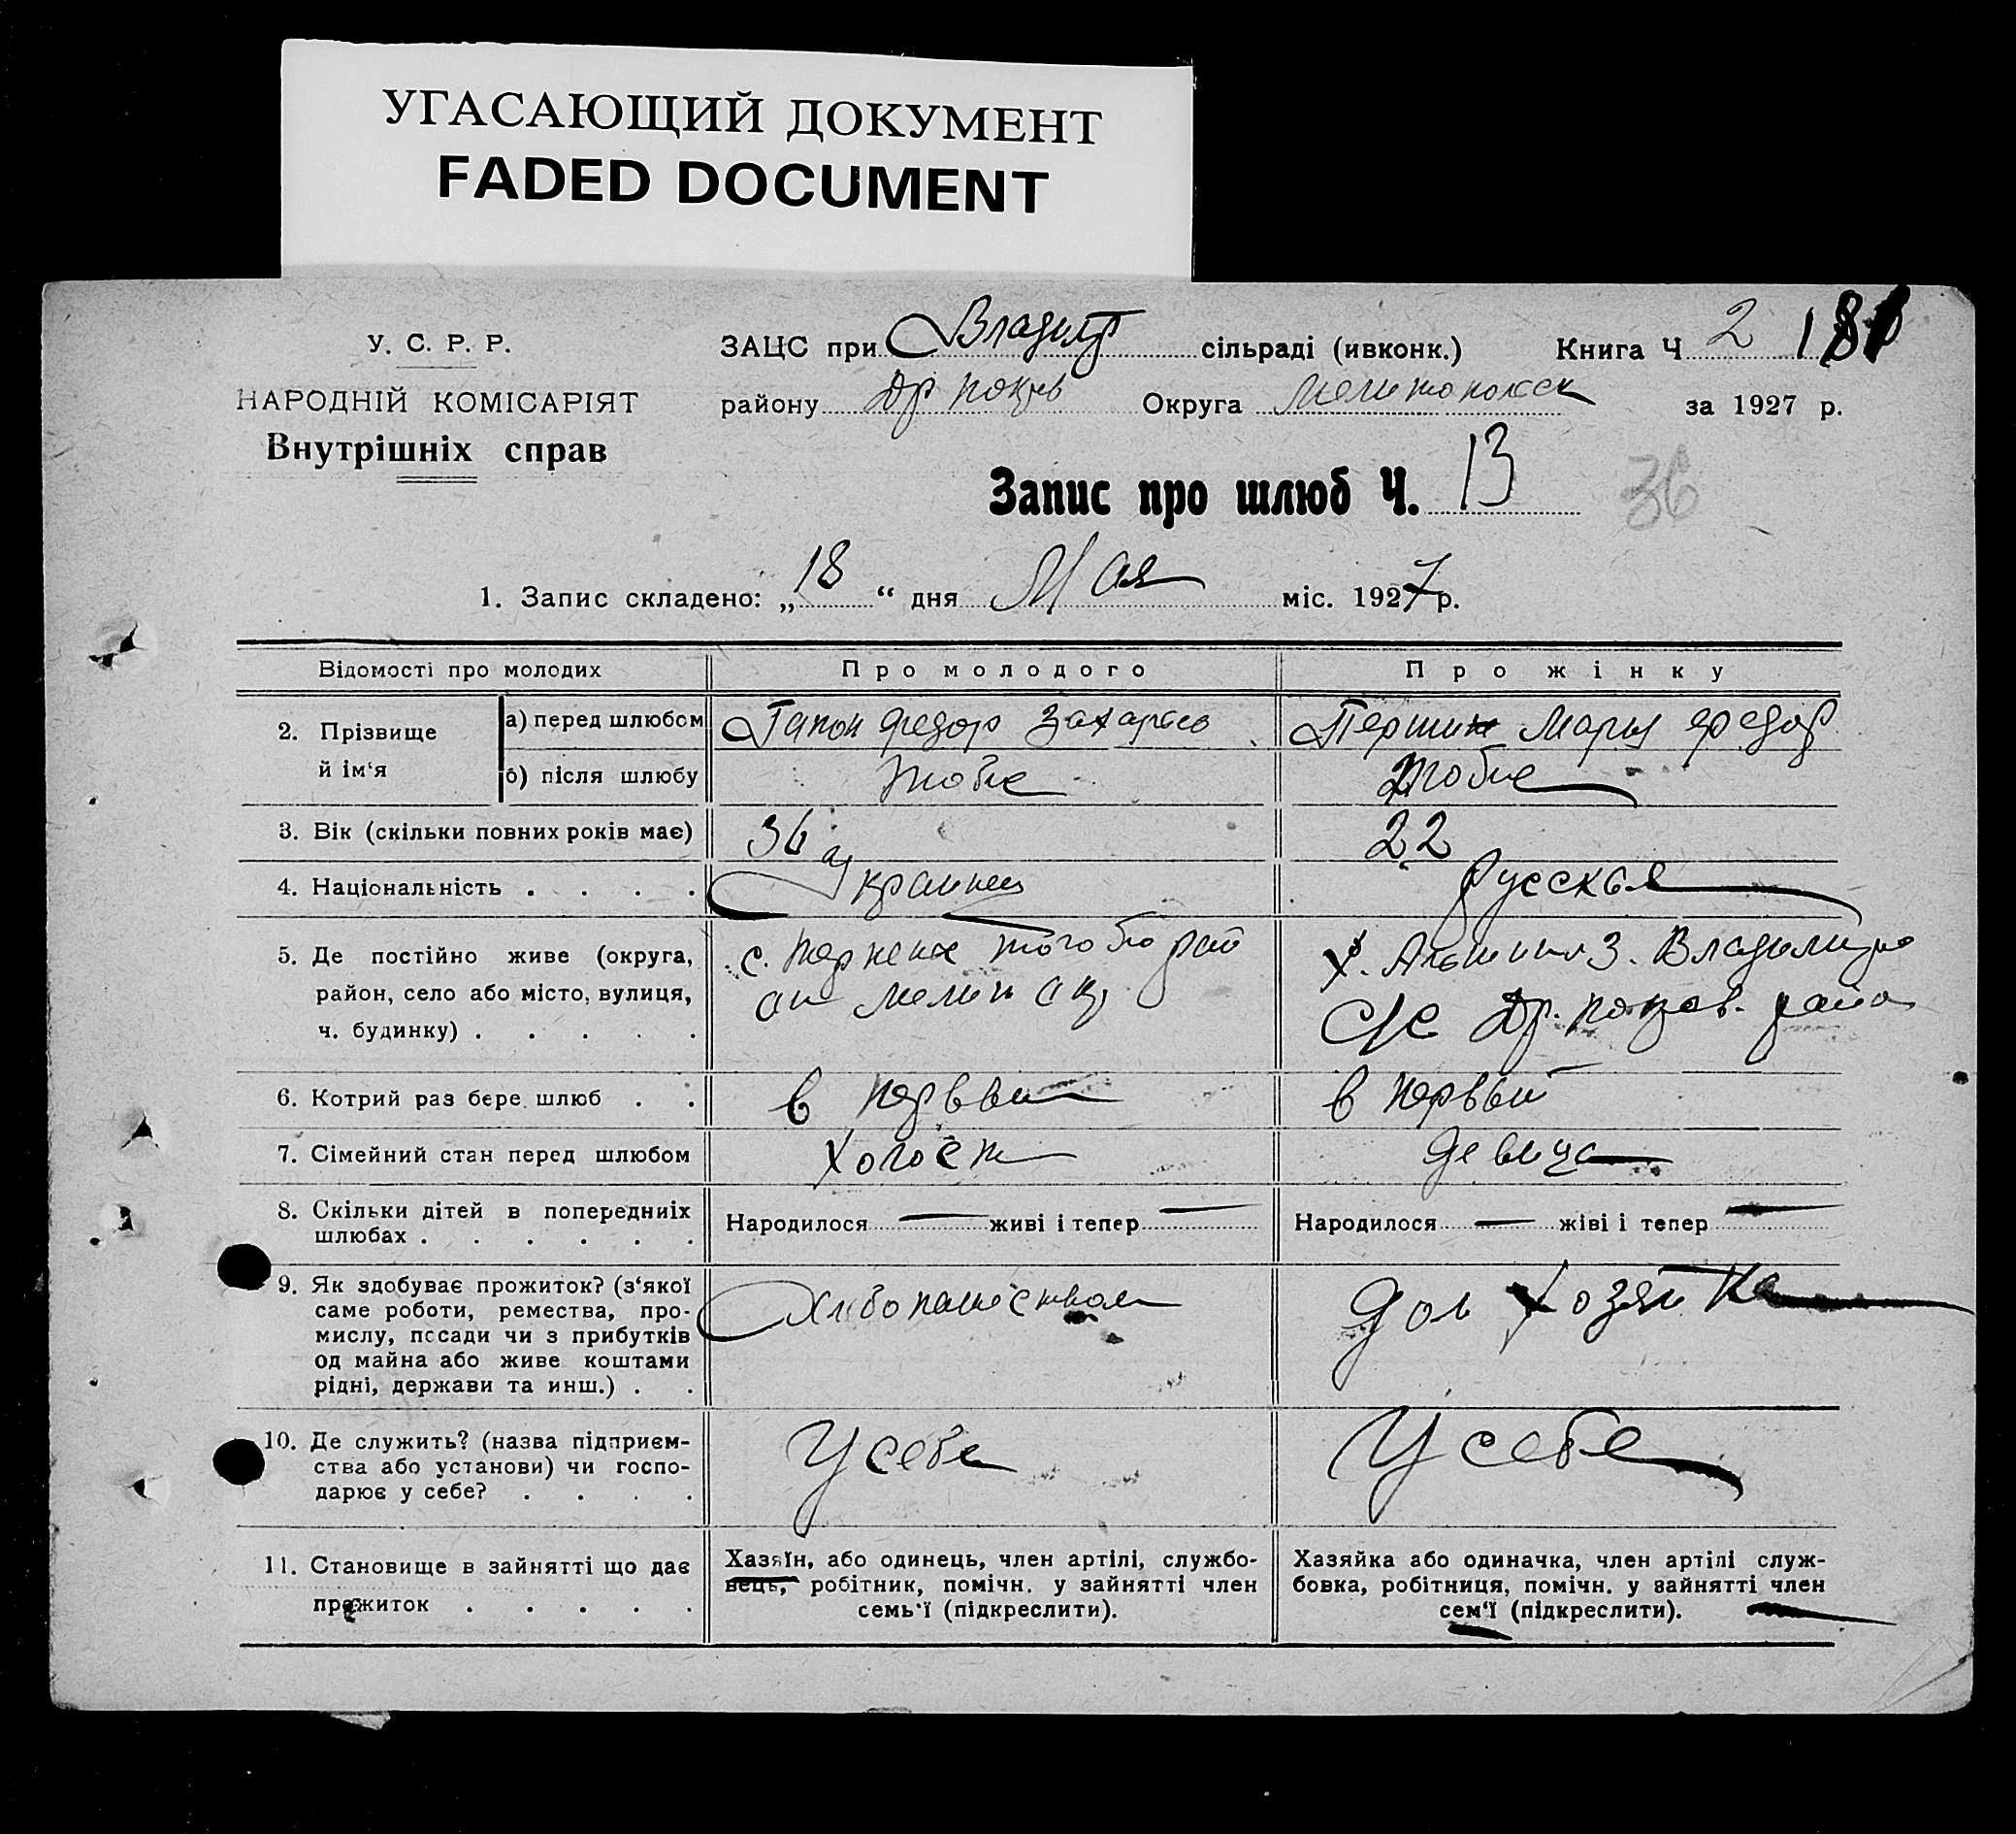 УГАСАЮЩИЙ ДОКУМЕНТ
FADED DOCUMENT
У. С. Р. Р.
НАРОДНІЙ КОМІСАРІЯТ
Внутрішніх справ
ЗАЦС при Владимр сільраді (ивконк.) Книга Ч 2
району Др покр Округа Мелитопольск за 1927 р.
Запис про шлюб Ч. 13
36
1. Запис складено: „18“ дня Мая міс. 1927 р.
Відомості про молодих Про молодого Про жінку
2. Прізвище й ім‘я
а) перед шлюбом Гапон Федор Захарьев Першин Мария Федор
б) після шлюбу тоже тоже
3. Вік (скільки повних років має) 36 22
4. Національність . . . . Украинец Русская
5. Де постійно живе (округа, район, село або місто, вулиця, ч. будинку) . . . . .
с. того рай
Мелит окр
х. Владимиро
с/с Др. покров. район
6. Котрий раз бере шлюб . . в первый в первый
7. Сімейний стан перед шлюбом Холост девица
8. Скільки дітей в попередниіх шлюбах . . . . . .
Народилося — живі і тепер —
Народилося — жіві і тепер —
9. Як здобуває прожиток? (з‘якої саме роботи, ремества, промислу, посади чи з прибутків од майна або живе коштами рідні, держави та инш.) . .
Хлебопашеством
дом хозяйка
10. Де служить? (назва підприємства або установи) чи господарює у себе? . . . .
У себе У себе
11. Становище в зайнятті що дає прожиток . . . . .
Хазяїн, або одинець, член артілі, службовець, робітник, помічн. у зайнятті член семь‘ї (підкреслити).
Хазяйка або одиначка, член артілі службовка, робітниця, помічн. у зайнятті член сем‘ї (підкреслити).